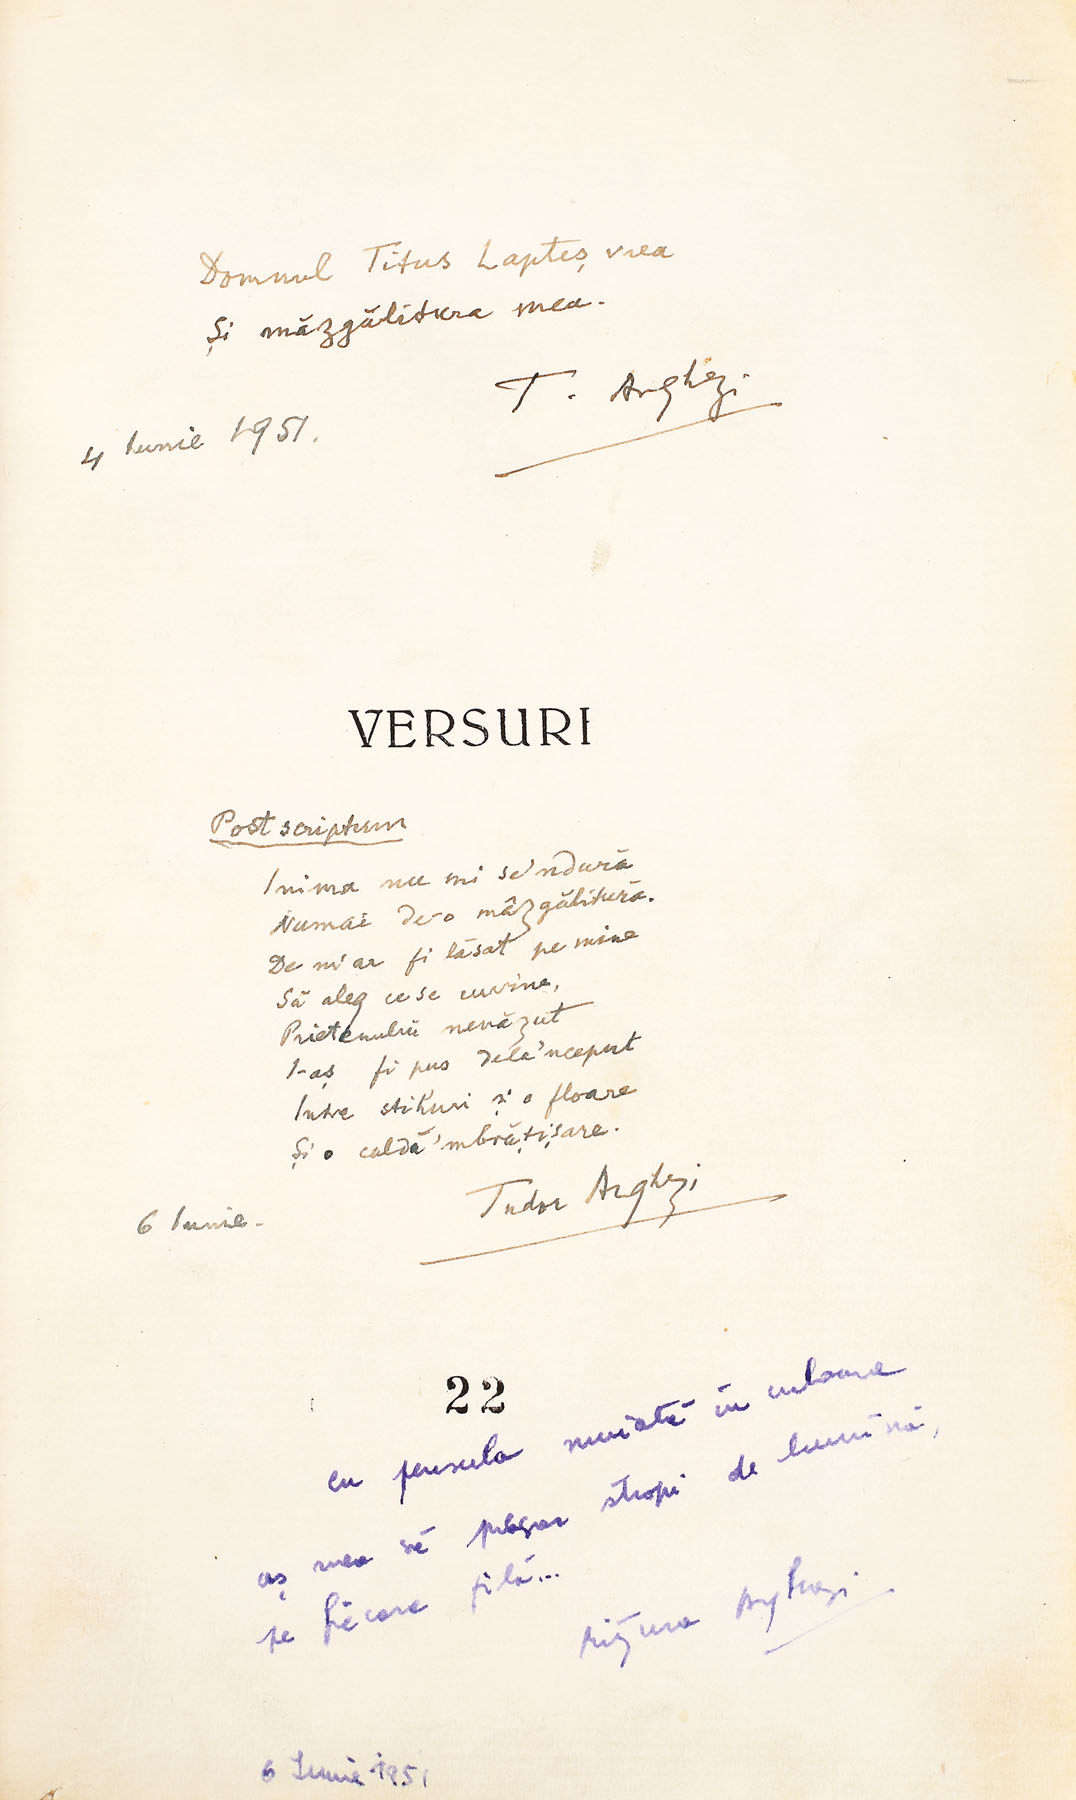 Domnul Titus Lapteș vrea
Și măzgălitura mea.
T. Arghezi
4 Iunie 1951.
VERSURI
Post scriptum
Inima nu mi se'ndură
Numai de-o mâzgălitură.
De m'ar fi lăsat pe mine
Să aleg ce se cuvine,
Prietenului nevăzut
I-aș fi pus dela'nceput
Intre stihuri și o floare
Și o caldă'mbrățișare.
Tudor Arghezi
6 Iunie.
22
cu pensula muiată în culoare
aș vrea să presar stropi de lumină,
pe fiecare filă...
Mițura Arghezi
6 Iunie 1951